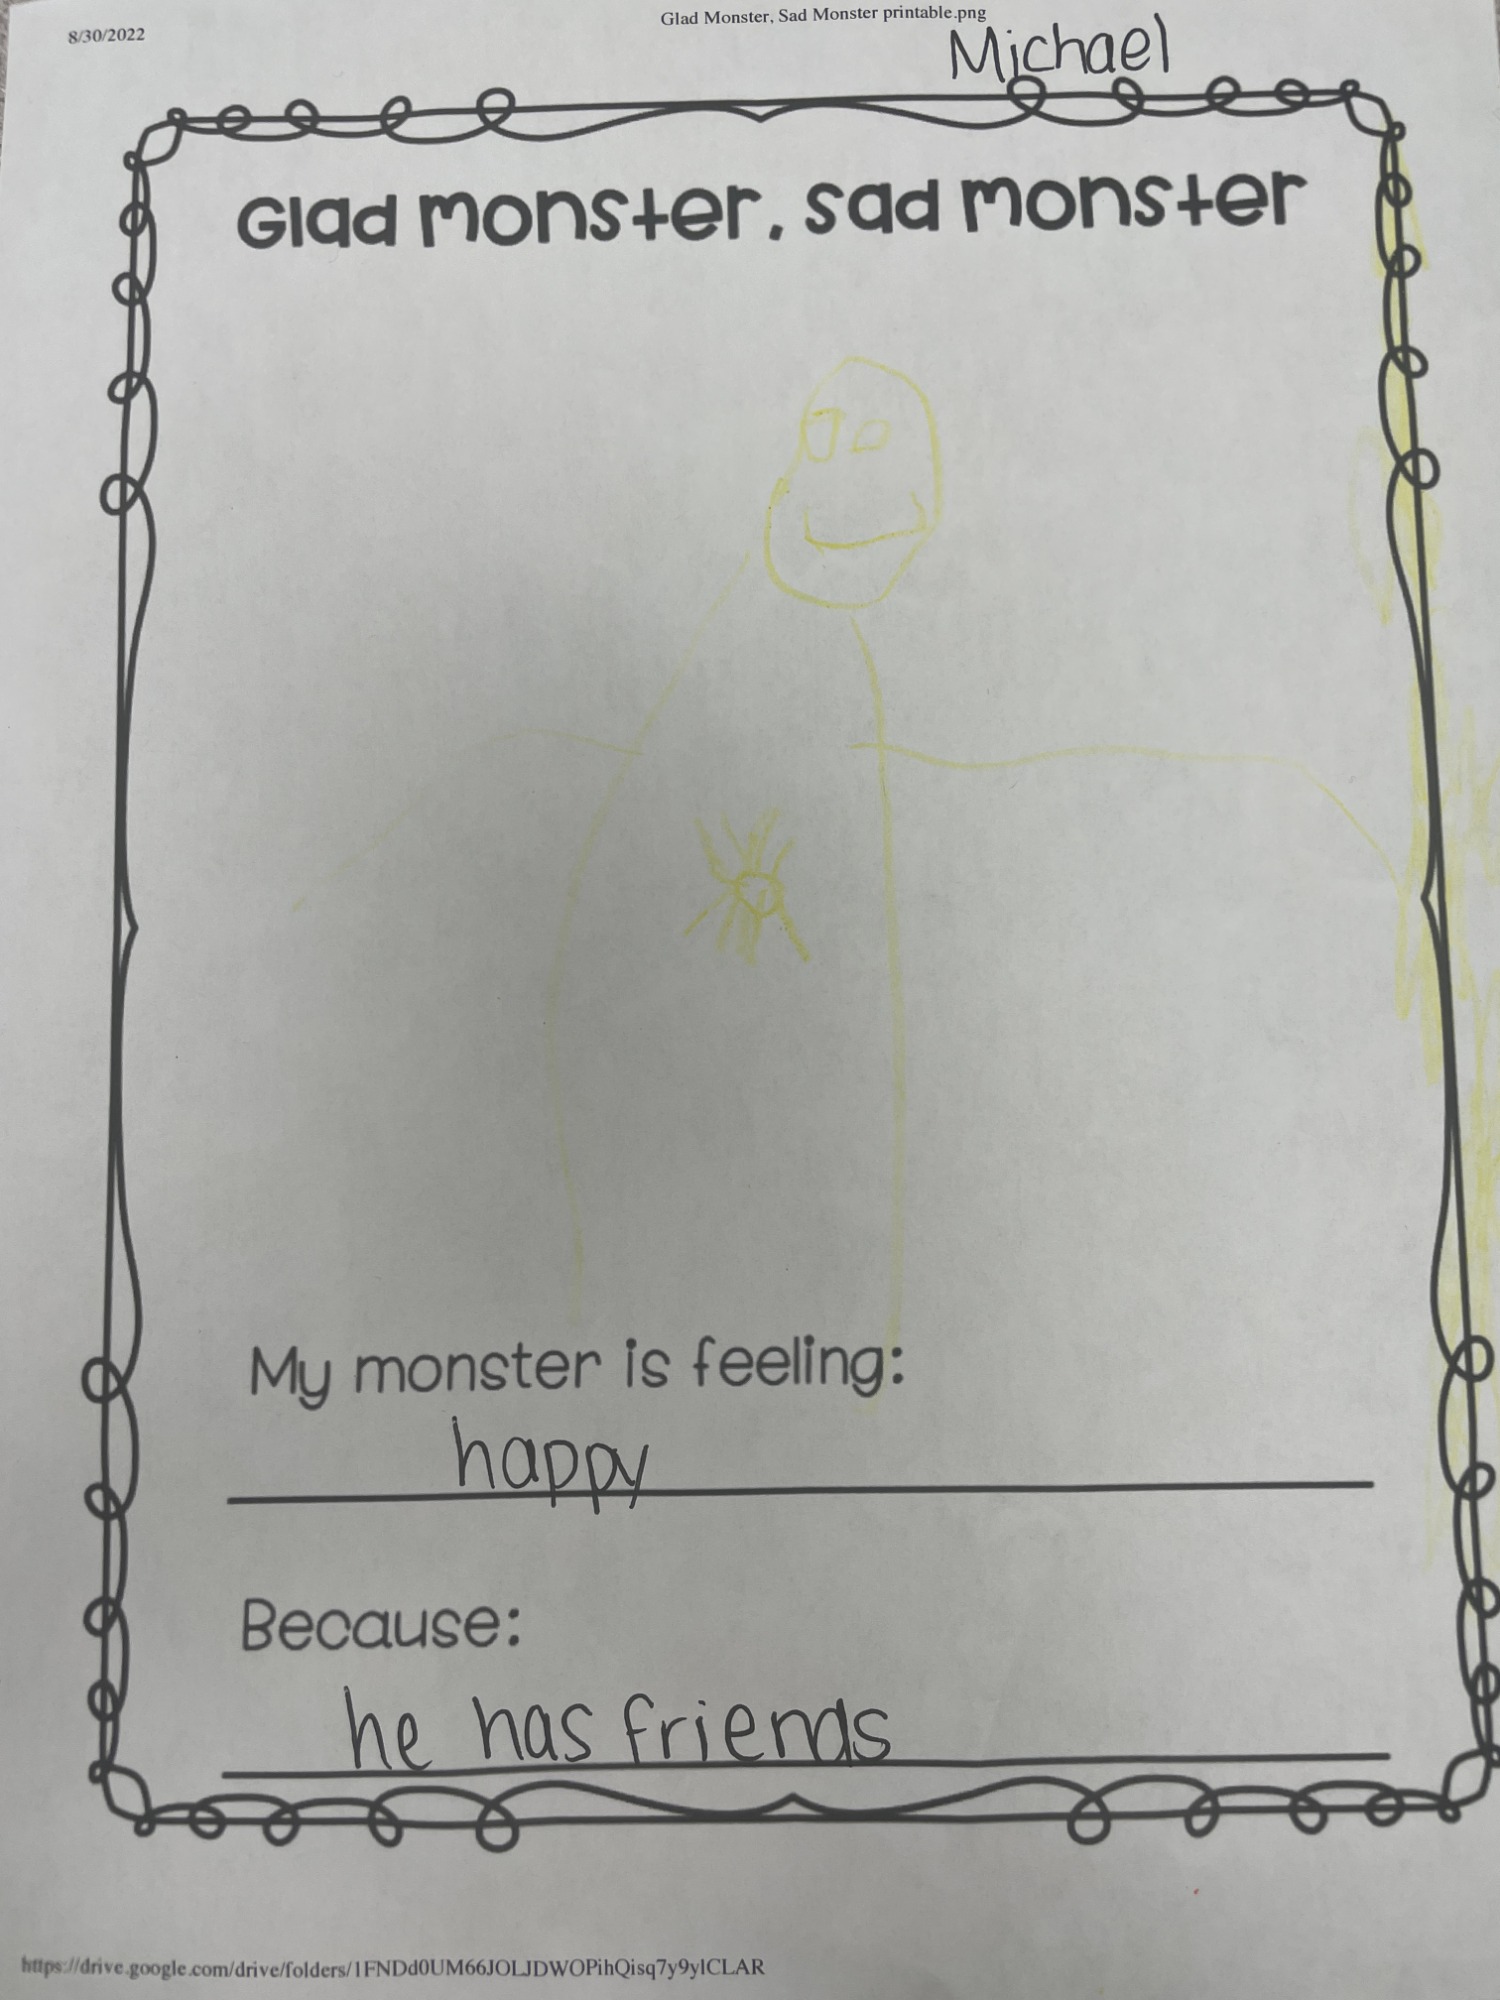 8/30/2022
Glad Monster, Sad Monster printable.png
Michael
Glad monster, sad monster
My monster is feeling:
happy
Because:
he has friends
https://drive.google.com/drive/folders/1FNDd0UM66JOLJDWOPihQisq7y9ylCLAR